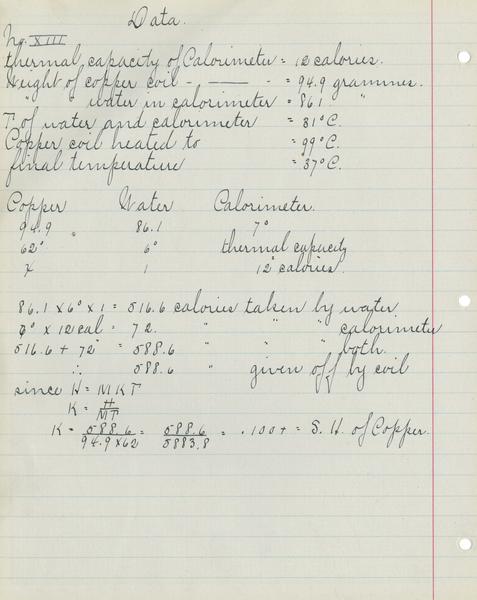 Data.
No. XIII
thermal capacity of Calorimeter = 12 calories.
Weight of copper coil - — - = 94.9 grammes.
" " water in calorimeter = 86.1 "
T of water and calorimeter = 31°C.
Copper coil heated to = 99°C.
final temperature = 37°C.
Copper Water Calorimeter.
94.9 " 86.1 7°
62° 6° thermal capacity
x 1 12° calories.
86.1 x 6° x 1 = 516.6 calories taken by water
6° x 12 cal = 72. " " " calorimeter
516.6 + 72° = 588.6 " " " both.
∴ 588.6 " given off by coil
since H = MKT
K = H/MT
K = 588.6/94.9x62 = 588.6/5883.8 = .100+ = S. H. of Copper.